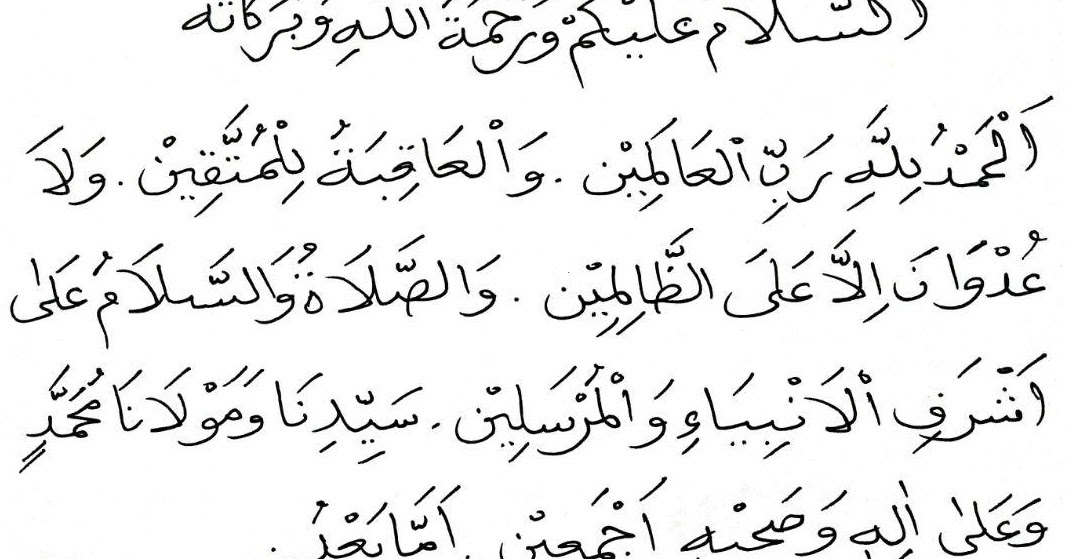 السلام عليكم ورحمة الله وبركاته
اَلْحَمْدُ لِلَّهِ رَبِّ الْعَالَمِيْن . وَالْعَاقِبَةُ لِلْمُتَّقِيْن . وَلَا
عُدْوَانَ اِلَّا عَلَى الظَّالِمِيْن . وَالصَّلَاةُ وَالسَّلَامُ عَلٰى
اَشْرَفِ الْاَنْبِيَاءِ وَالْمُرْسَلِيْن . سَيِّدِنَا وَمَوْلَانَا مُحَمَّدٍ
وَعَلٰى اٰلِهِ وَصَحْبِهِ اَجْمَعِيْن . اَمَّا بَعْدُ .